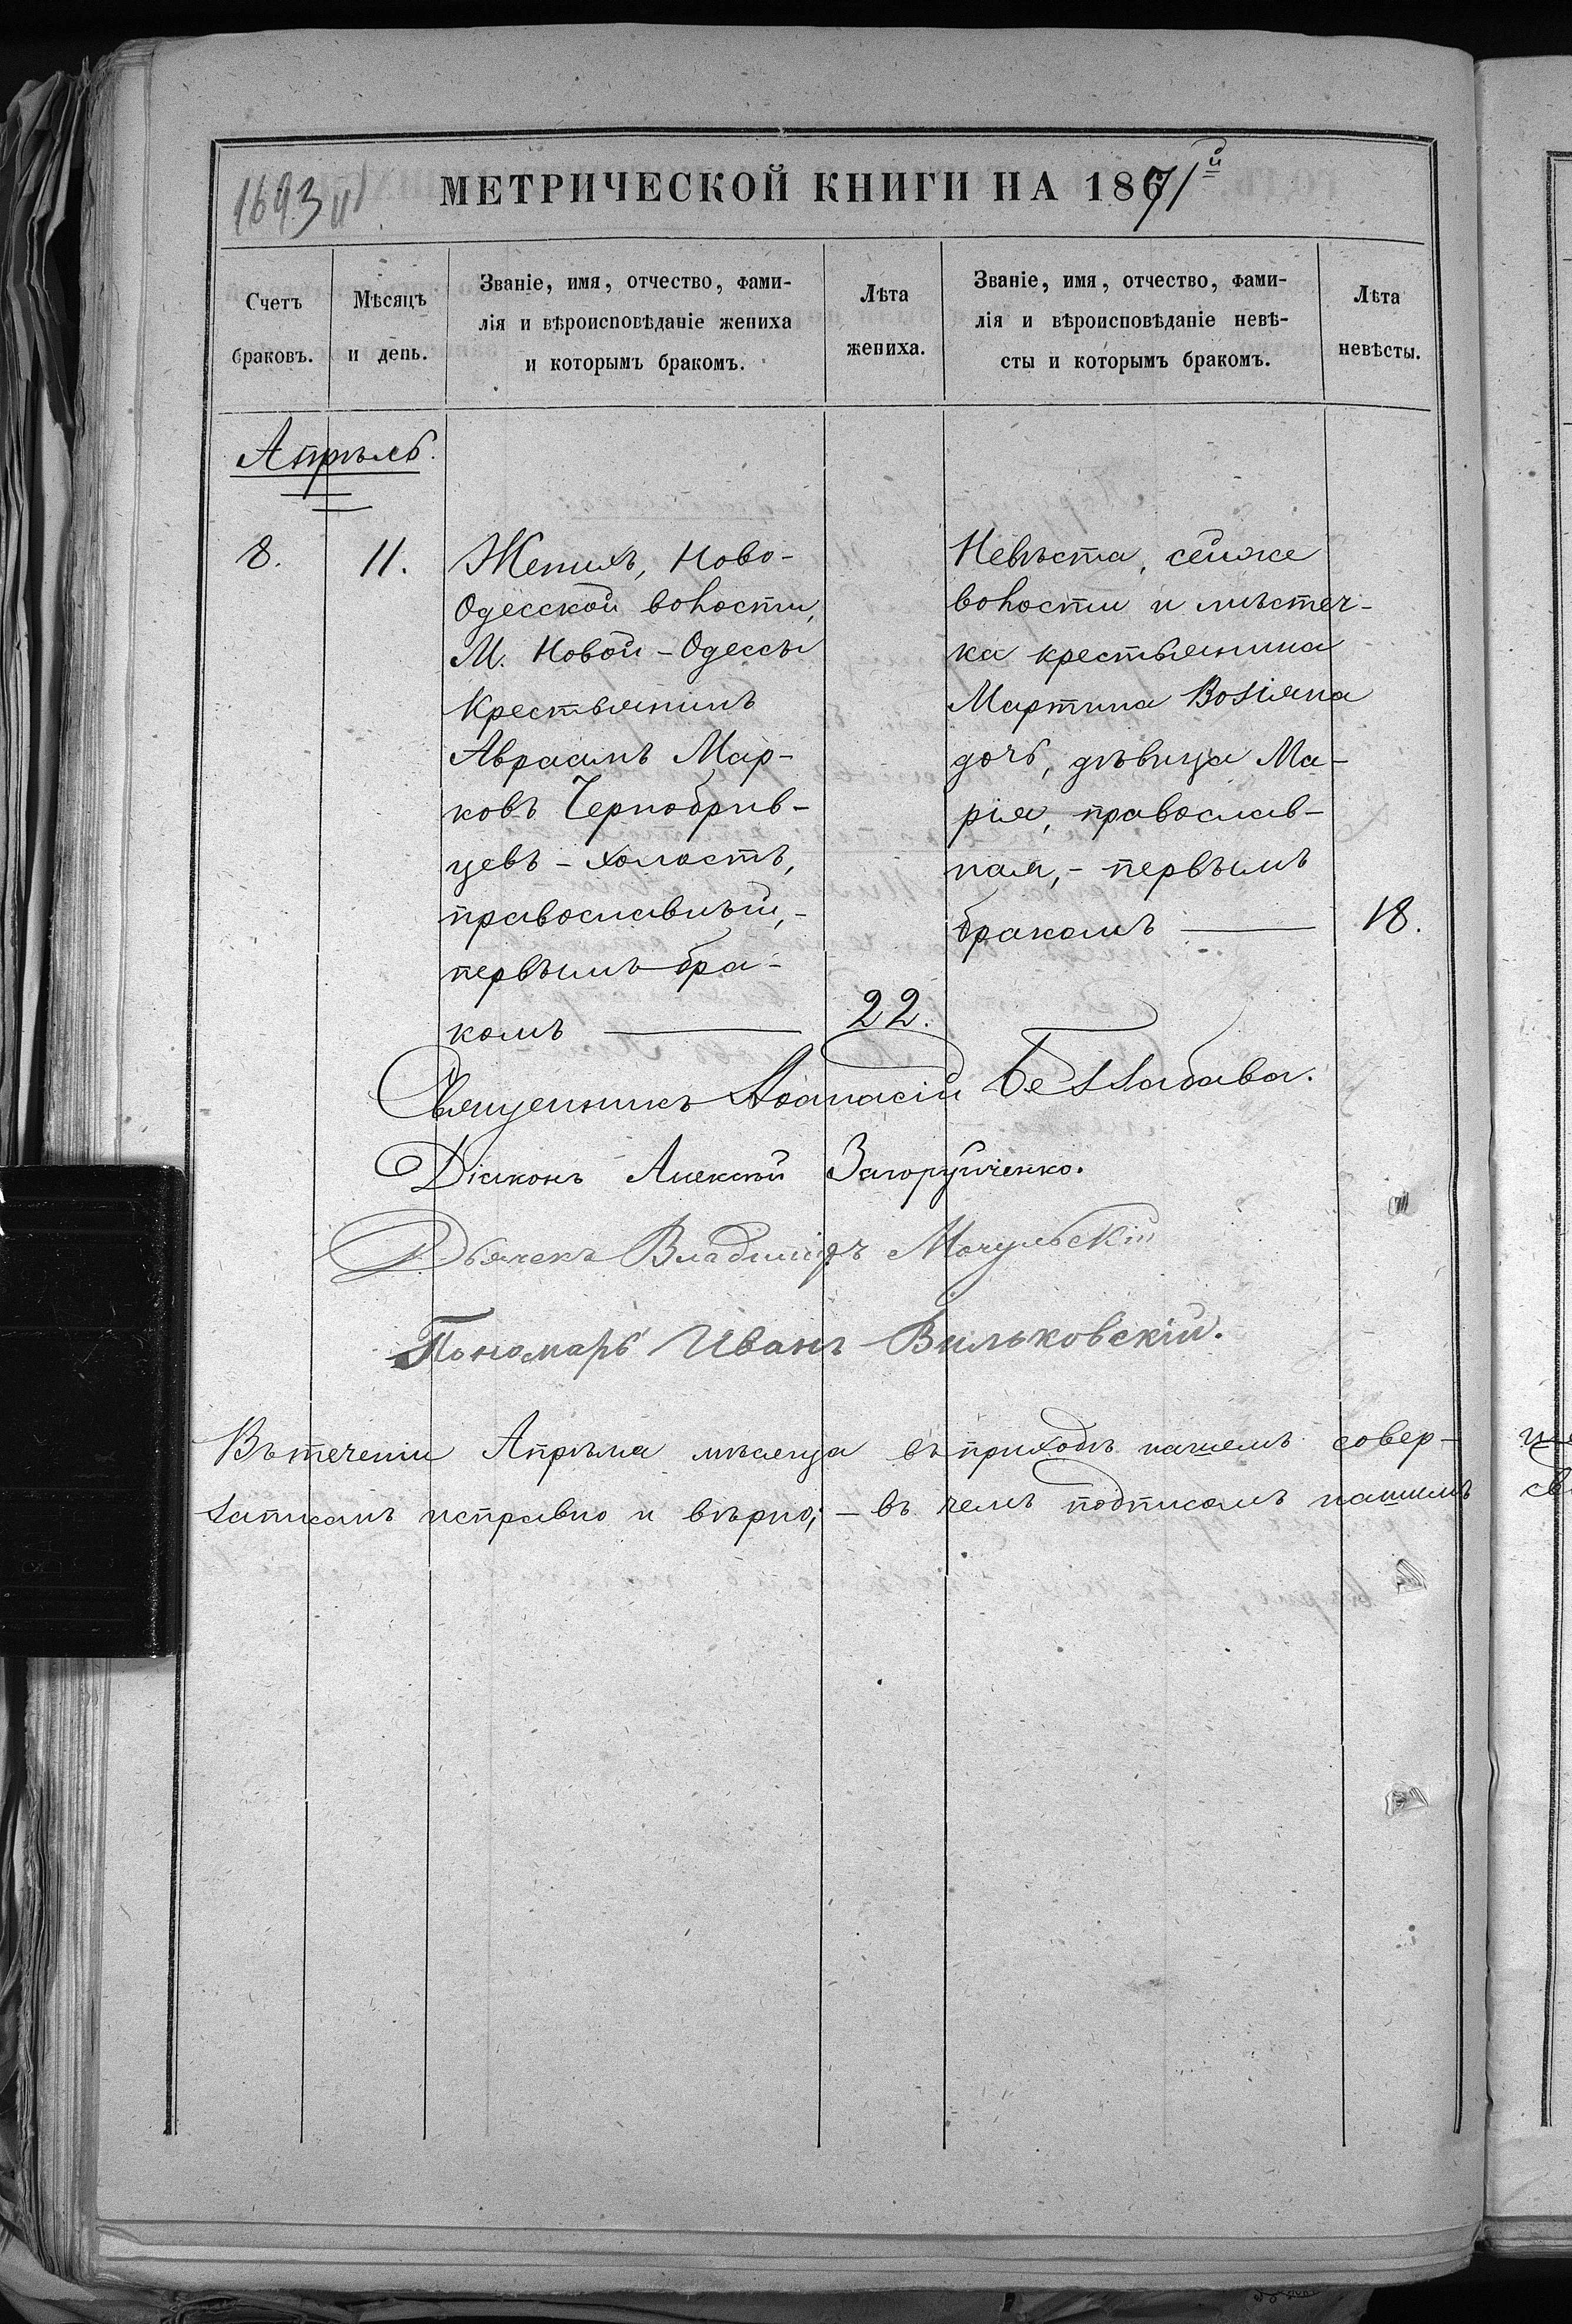 1693 и
МЕТРИЧЕСКОЙ КНИГИ НА 1871й
Счетъ браковъ.
Мѣсяцъ и день.
Званіе, имя, отчество, фами-
лія и вѣроисповѣданіе жениха
и которымъ бракомъ.
Лѣта жениха.
Званіе, имя, отчество, фами-
лія и вѣроисповѣданіе невѣ-
сты и которымъ бракомъ.
Лѣта невѣсты.
Апрѣль.
8.
11.
Женихъ, Ново-
Одесской волости,
М. Новой-Одессы
Крестьянинъ
Авраамъ Мар-
ковъ Чернобрив-
цевъ - холостъ,
православный, -
первымъ бра-
комъ
22.
Невѣста, сейже
волости и мѣстеч-
ка крестьянина
Мартина Возіяна
дочь, дѣвица Ма-
рія, православ-
ная, - первымъ
бракомъ
18.
Священникъ Аѳанасій Беззабава.
Діаконъ Алексѣй Загоруйченко.
Дьячекъ Владиміръ Мочульскій
Пономарь Иванъ Вильковскій.
Въ теченіи Апрѣля мѣсяца въ приходѣ нашемъ совер-
записанъ исправно и вѣрно; - въ чемъ подписомъ нашимъ